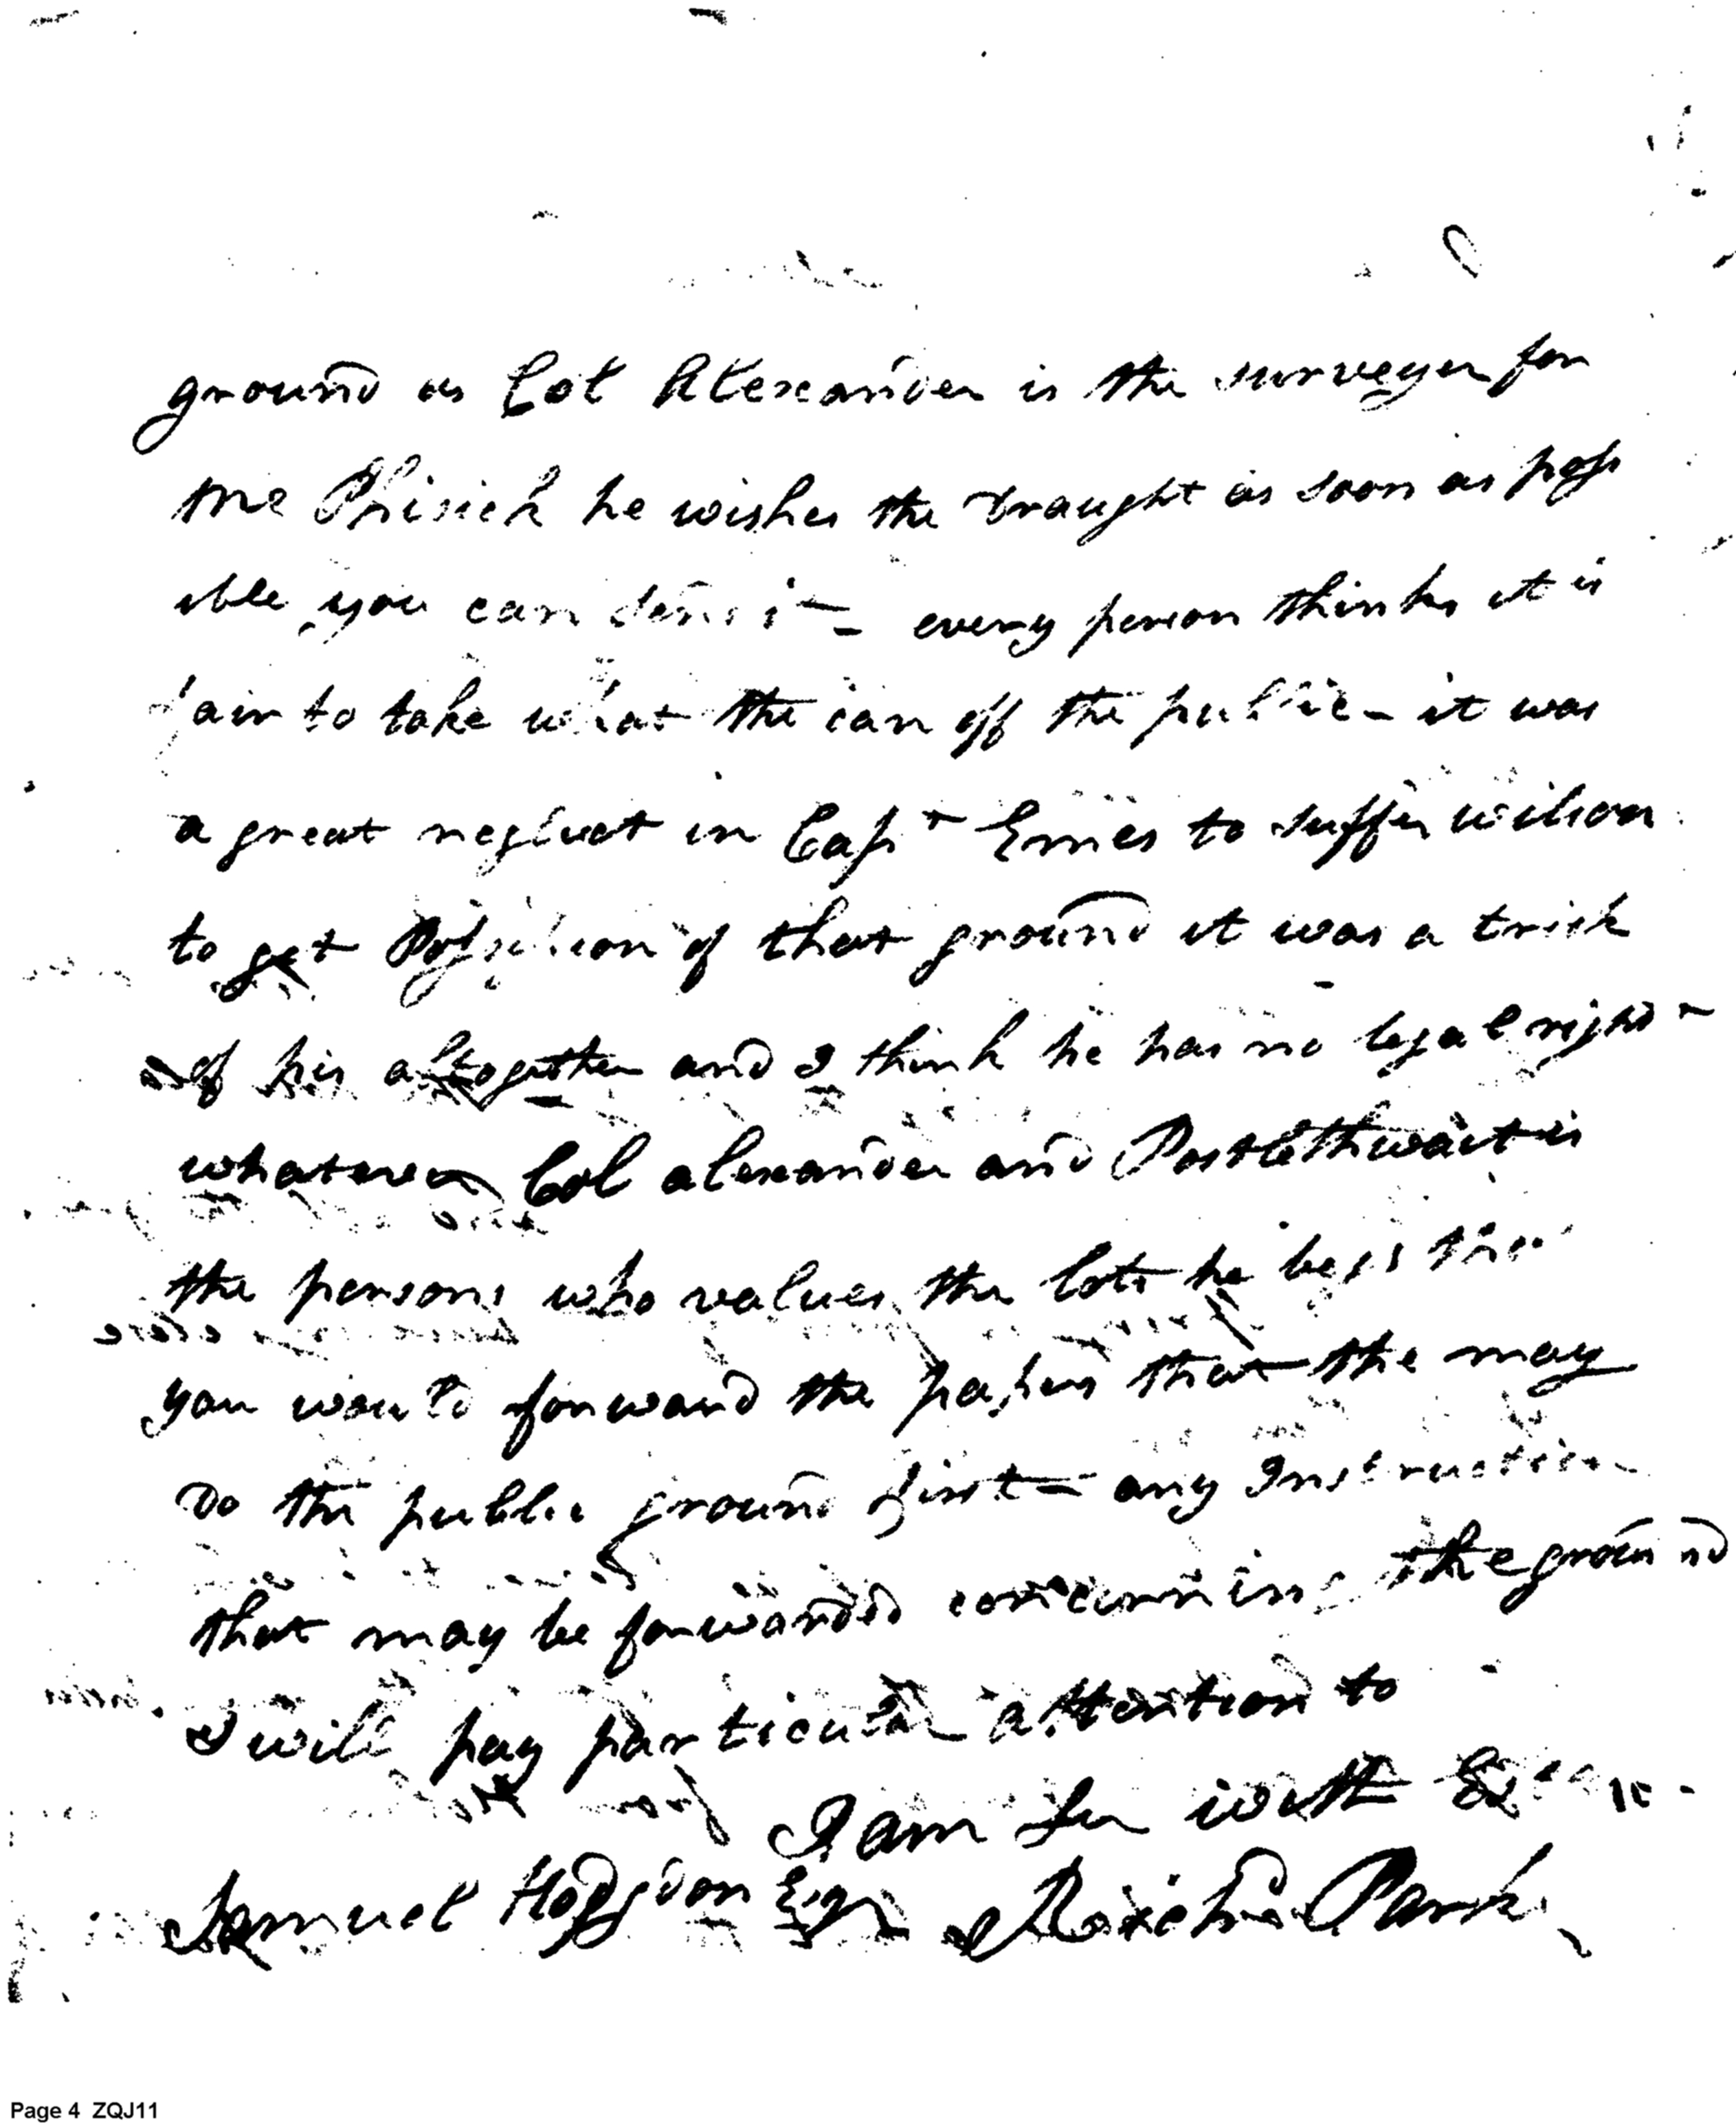 ground as Col Alexander is the surveyer for
Mr Phisick he wishes the draught as soon as poss
ible you can send it – every person thinks it is
fair to take what the can off the public – it was
a great neglect in Capt Emes to suffer wilson
to get Possession of that ground it was a trick
of his altogether and I think he has no legal right
whatever Col alexander and Postlethwait is
the persons who values the lots he begs
you would forward the papers that the may
Do the public ground first – any Instruction
that may be forwarded concerning the ground
I will pay particular attention to
I am Sir with
Samuel Hodgdon Esqr Richd Parker
Page 4 ZQJ11